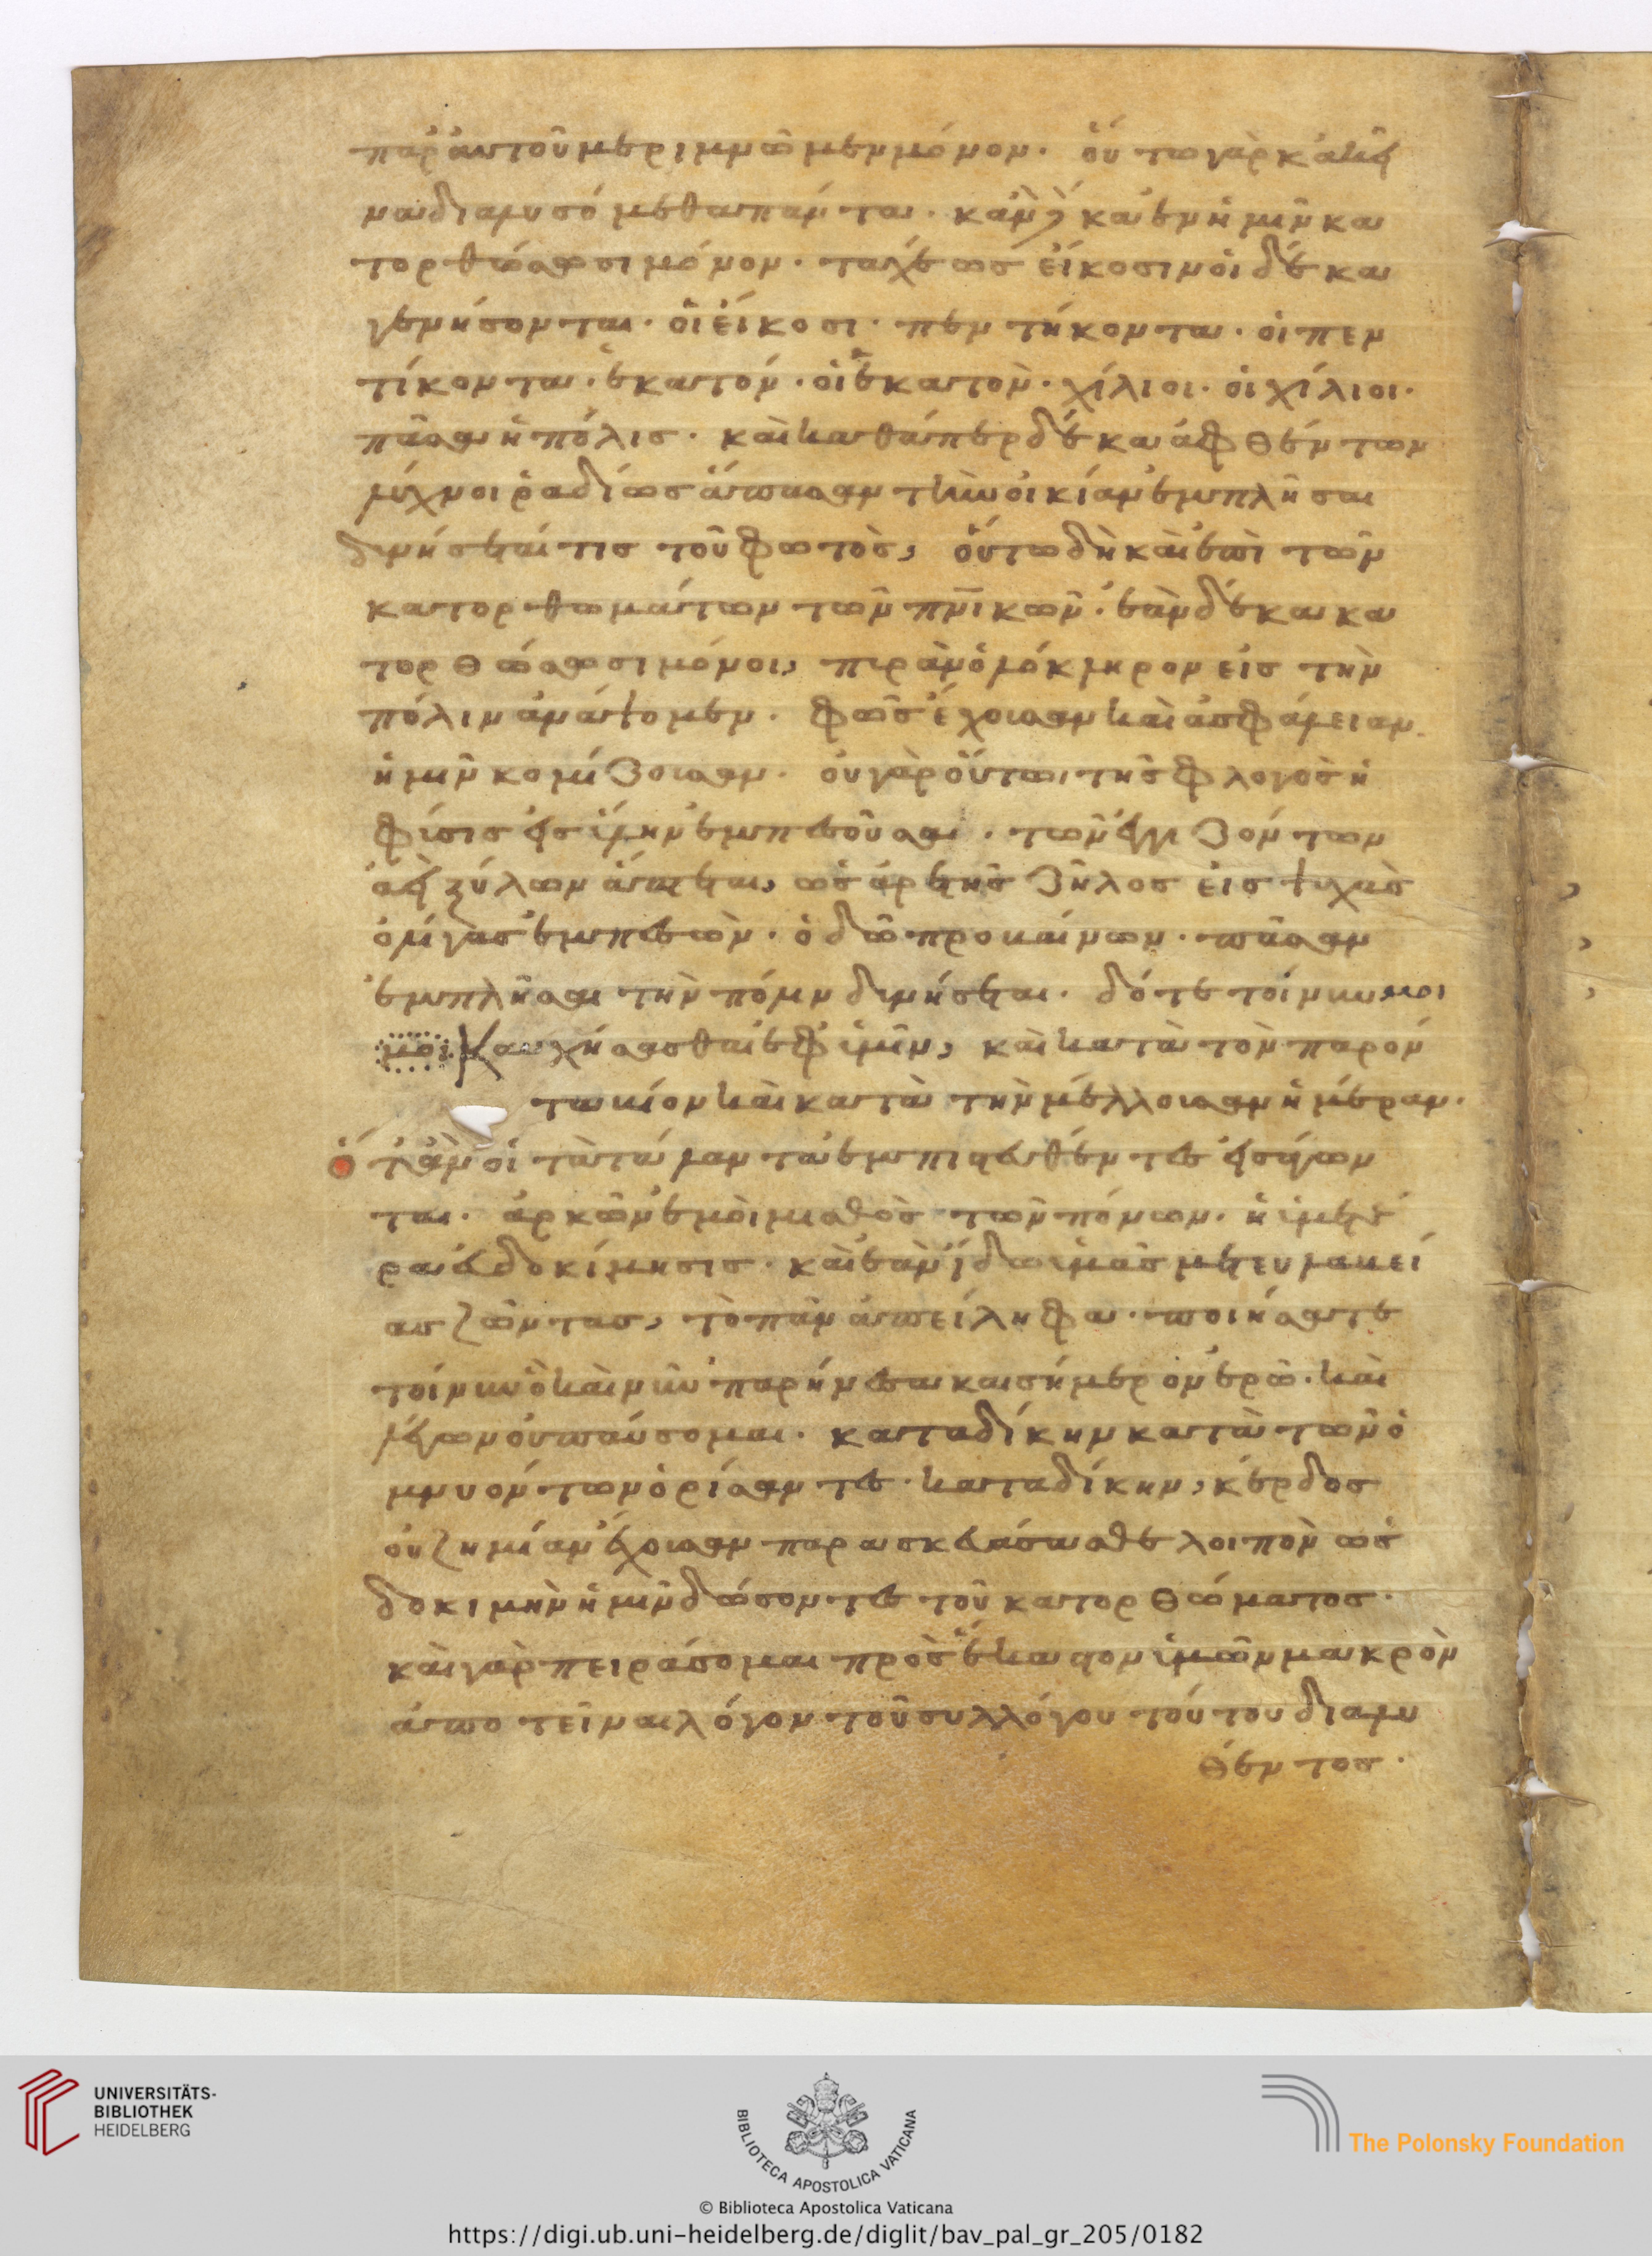 παρ' αὐτοῦ μεριμνῶμεν μόνον. οὕτω γὰρ κἀκεῖ
να διανυσόμεθα πάντα. κἂν δέκα ἐν ἡμῖν κα
τορθώσωσι μόνον. ταχέως εἴκοσιν οἱ δέκα
γενήσονται. οἱ εἴκοσι. πεντήκοντα. οἱ πεν
τίκοντα. ἑκατόν. οἱ ἑκατὸν. χίλιοι. οἱ χίλιοι.
πᾶσα ἡ πόλις. καὶ καθάπερ δέκα ἀφθέντων
λύχνοι ῥαδίως ἅπασαν τὴν οἰκίαν ἐμπλῆσαι
δυνήσεταί τις τοῦ φωτὸς, οὕτω δὴ καὶ ἐπὶ τῶν
κατορθωμάτων τῶν πν̅ικῶν. ἐὰν δέκα κα
τορθώσωσι μόνοι, πυρὰν ὁλόκληρον εἰς τὴν
πόλιν ἀνάψομεν. φῶς ἔχουσαν καὶ ἀσφάλειαν
ἡμῖν κομίζουσαν. οὐ γὰρ οὕτω, τῆς φλογὸς ἡ
φύσις εἰς ὕλην ἐμπεσοῦσα. τῶν ἐγγιζόντων
ἀεὶ ξύλων ἅπτεται, ὡς ἀρετῆς ζῆλος εἰς ψυχὰς
ὀλίγας ἐμπεσὼν. ὁδῶ προβαίνων. πᾶσαν
ἐμπλῆσαι τὴν πόλιν δυνήσεται. δότε τοίνυν μοι
μοι καυχήσασθαι ἐφ' ὑμῖν, καὶ κατὰ τὸν παρόν
τα βίον καὶ κατὰ τὴν μέλλουσαν ἡμέραν.
ὅταν οἱ τὰ τάλαντα ἐμπιστευθέντες εἰσάγων
ται. ἀρκῶν ἐμοὶ μισθὸς τῶν πόνων. ἡ ὑμετέ
ρα εὐδοκίμησις. καὶ ἐὰν ἴδω ὑμᾶς μετ' εὐλαβεί
ας ζῶντας, τὸ πᾶν ἀπείληφα. ποιήσατε
τοίνυν ὃ καὶ νῦν παρήνεσα καὶ σήμερον ἐρῶ. καὶ
λέγων οὐ παύσομαι. καταδίκην κατὰ τῶν ὀ
μνυόντων ὁρίσαντες. καταδίκην, κέρδος
οὐ ζημίαν ἔχουσαν παρασκευάσασθε λοιπὸν ὡς
δοκιμὴν ἡμῖν δώσοντες τοῦ κατορθώματος.
καὶ γὰρ πειράσομαι πρὸς ἕκαστον ὑμῶν μακρὸν
ἀποτεῖναι λόγον τοῦ συλλόγου τούτου διαλυ
θέντος.
UNIVERSITÄTS-
BIBLIOTHEK
HEIDELBERG
BIBLIOTECA APOSTOLICA VATICANA
The Polonsky Foundation
© Biblioteca Apostolica Vaticana
https://digi.ub.uni-heidelberg.de/diglit/bav_pal_gr_205/0182